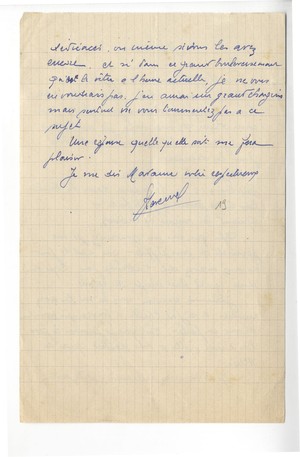 même si vous les avez
encore. et si dans ce grand bouleversement
qui est le vôtre à l'heure actuelle je ne vous
pas, j'en aurai un grand chagrin
mais surtout ne vous tourmentez pas à ce
sujet
Une réponse quelle qu'elle soit me fera
plaisir.
Je me dis Madame votre respectueux
19